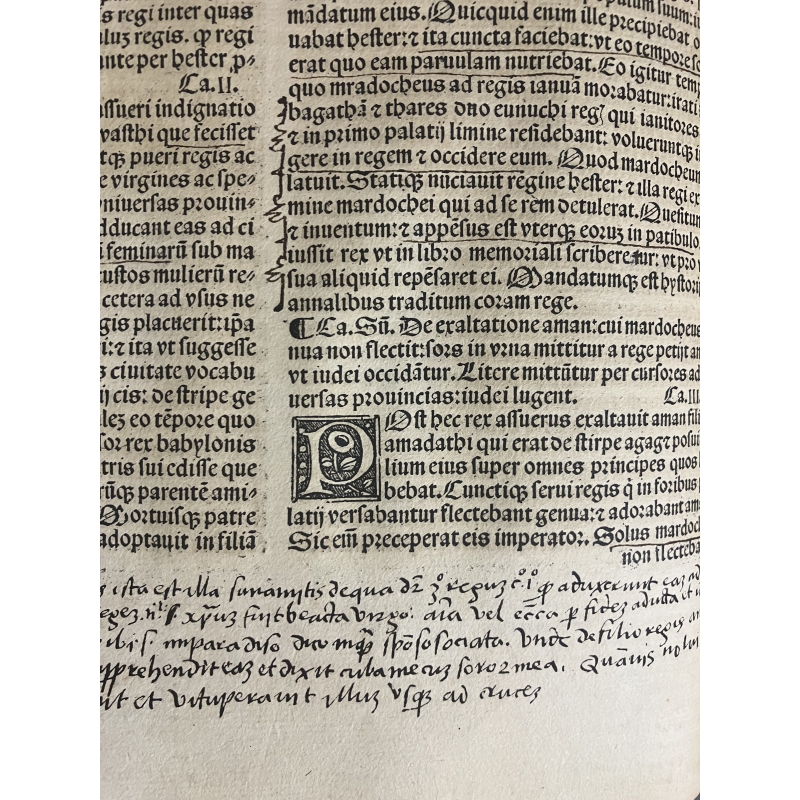 s regi inter quas
luʒ regis. ꝙ regi
ante per hester p-
Ca.II.
assueri indignatio
vasthi que fecisset
tqʒ pueri regis ac
e virgines ac spe-
niuersas prouin-
dducant eas ad ci
i feminarū sub ma
custos mulierū re-
cetera ad vsus ne
gis placuerit: ip̄a
i: ⁊ ita vt suggesse
s ciuitate vocabu
ij cis: de stirpe ge
leʒ eo tēpore quo
sor rex babylonis
tris sui edisse que
rūqʒ parentē ami-
Mortuisqʒ patre
adoptauit in filiā
populum suum: i
mādatum eius. Quicquid enim ille precipiebat o
uabat hester: ⁊ ita cuncta faciebat: vt eo tempore so
erat quo eam paruulam nutriebat. Eo igitur temp
quo mradocheus ad regis ianuā morabatur: irati
bagathā ⁊ thares duo eunuchi regʒ qui ianitores
⁊ in primo palatij limine residebant: volueruntqʒ i
gere in regem ⁊ occidere eum. Quod mardocheum
latuit. Statiqʒ nūciauit regine hester: ⁊ illa regi ex
mine mardochei qui ad se rem detulerat. Quesitum
⁊ inuentum: ⁊ appēsus est vterqʒ eorum in patibulo
iussit rex vt in libro memoriali scriberetur: vt pro v
sua aliquid repēsaret ei. Mandatumqʒ est hystorijs
annalibus traditum coram rege.
¶ Ca. Sū. De exaltatione aman: cui mardocheus
nua non flectit: sors in vrna mittitur a rege petijt am
vt iudei occidātur. Litere mittūtur per cursores ad
uersas prouincias: iudei lugent. Ca.III
POst hec rex assuerus exaltauit aman fili
amadathi qui erat de stirpe agag ⁊ posui
lium eius super omnes principes quos
bebat. Cunctiqʒ serui regis q̇ in foribus
latij versabantur flectebant genua: ⁊ adorabant am
Sic em̄ preceperat eis imperator. Solus mardoc
non flecteba
ista est illa sunamitis de qua dr̄ 3º regum c.º 1º ꝙ aduxerunt eam ad
regem xp̄m fuit beata virgo. aīa vel ecc̄a per fidem adducta
ibi in paradiso sponso sociata. Unde de filio regis
apprehendit eam et dixit soror mea. Quāuis
it et vituperauit illum vsqʒ ad crucem